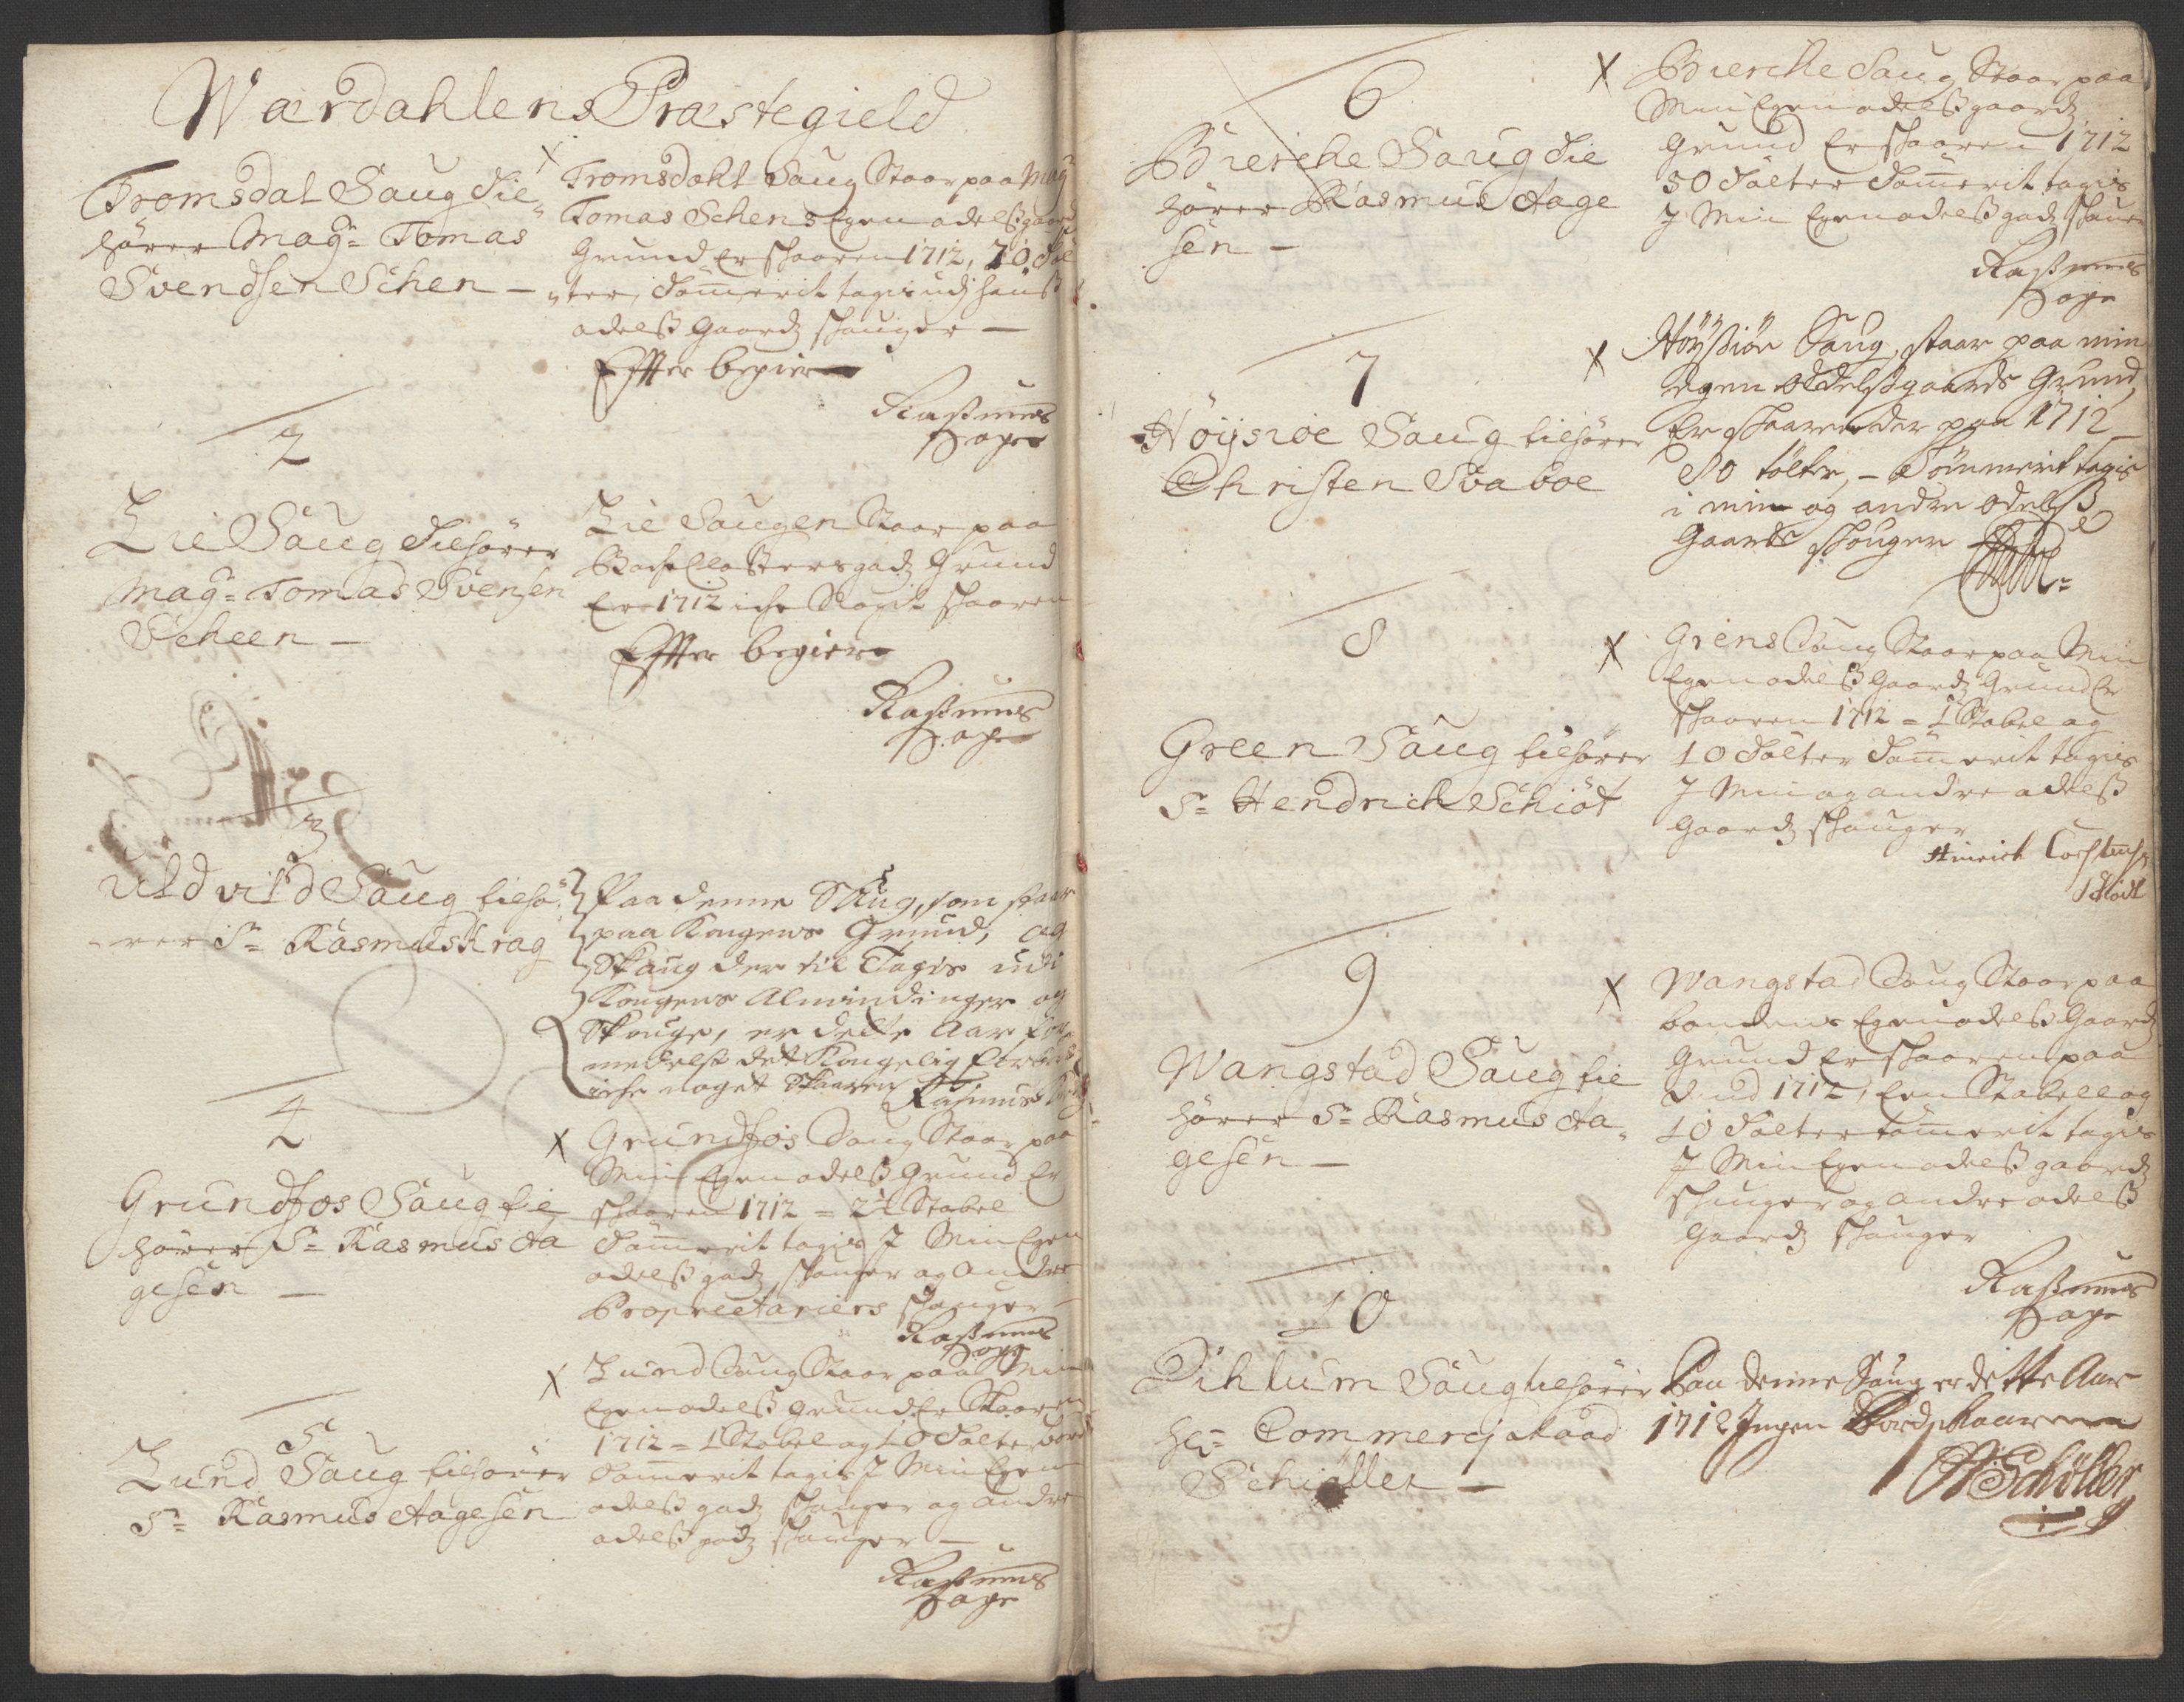 Wærdahlens Præstegield
Tromsdal Saug Til-
hører Mag:r Tomas
Svendsen Schen –
X
Tromsdahl Saug Staar paa Mag
Tomas Schens Egen odelsgaard
Grund Er skaaren 1712, 70 Tøl
ter, Tømerit tagis udj hans
odelß Gaardz skauger –
Effter begiering
Raßmus
Hage
2
Lie Saug Tilhører
Mag:r Tomas Svensen
Scheen –
Lie Saugen Staar paa
Bache Closters godz Grund
Er 1712 iche Noget skaaren
Effter begiering
Raßmus
Hage
3
Uldvild Saug tilhø-
rer Sr Rasmus Krag
Paa denne Saug, som staar
paa Kongens Grund, og
Skaug der til Tagis udi
Kongens Almindinger og
Skouge, er dette Aar for
medelst det Kongelig forbud
iche noget Skaaren Rasmus Krag
4
Grundfos Saug til
hører Sr Rasmus Aa
gesen –
X
Grundfos Saug Staar paa
Min Egen odelß Grund Er
skaaren 1712 = 2½ Stabel
Tømerit tagis J Min Egen
odelß godz skauger og Andre
Proprietariers skauger –
Raßmus
Hage
5
Lund Saug tilhører
Sr Rasmus Aagesen
X
Lund Saug Staar paa Min
Egen odelß Grund Er Skaaren
1712 = 1 Stabel og 10 Tølter bord
Tømerit tagis J Min Egen
odelß godz skauger og Andre
odelß godz skauger –
Raßmus
Hage
6
Bierche Saug Til
hører Rasmus Aage
sen –
X
Bierche Saug Staar paa
Min Egen odelß gaardz
Grund Er skaaren 1712
50 Tølter Tømerit tagis
J Min Egen odelß godz skauer
Raßmus
Hage
7
Höysiöe Saug tilhører
Christen Svaboe
X
Höysiöe Saug, staar paa min
egen Oddelßgaards Grund,
Er skaaren der paa 1712
80 tølter, – Tömmerit tagis
i min og andre odelß
Gaards skouger
8
Green Saug tilhører
Sr Hendrich Schiöt
X
Griens Saug Staar paa Min
Egen odelß Gaardz Grund Er
skaaren 1712 = 1 Stabel og
10 Tølter Tømerit tagis
J Min og andre odelß
Gaardz skauger
Hinrich
Schiöt
9
Wangstad Saug til
hører Sr Rasmus Aa-
gesen –
X
Wangstad Saug Staar paa
bondens Egen odelß Gaardz
Grund Er skaaren paa
1712, Een Stabell og
10 Tølter tømerit tagis
J Min Egen odelß gaardz
skauger og andre odelß
Gaardz skauger
Raßmus
Hage
10
Dihlum Saug tilhører
Hr: Commercj Raad
Schiøller –
Paa denne Saug er dette Aar
1712 Jngen Bord skaaren
Schöller